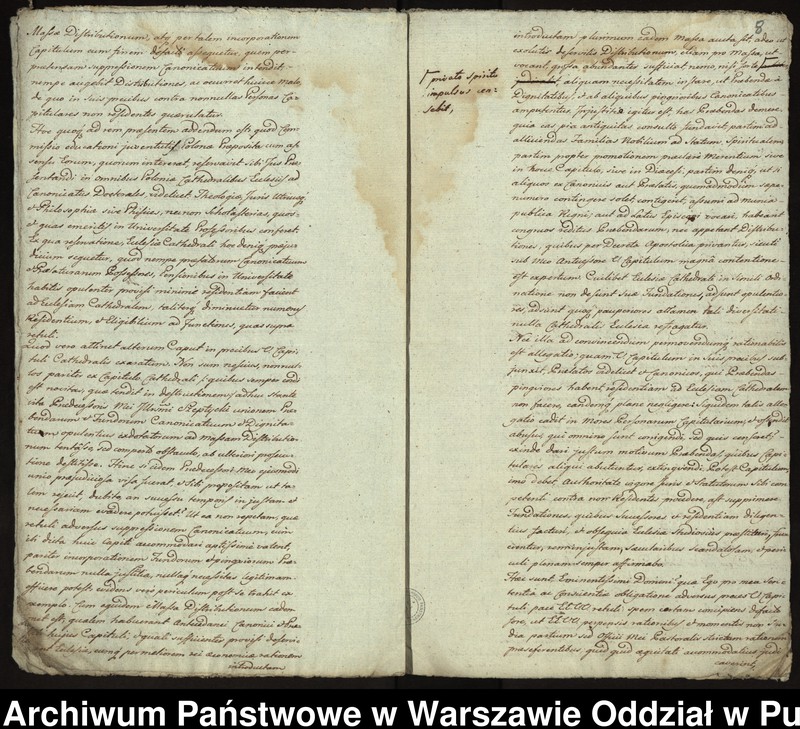 Massæ Distributionum, atq; per talem incorporationem
Capitulum eum finem assequetur, quem per
prætensam suppressionem Canonicatuum intendit
nempe augebit Distributiones, ac occurret huic malo
de quo in suis precibus contra nonnullas Personas Ca-
pitulares non residentes quæruntur.
Huc quoq; ad rem præsentem addendum est, quod Com-
missio educationi juventutis Polonæ Præposita cum as-
sensu Eorum, quorum intererat, reservavit sibi Jus Præ-
sentandi in omnibus Poloniæ Cathedralibus Ecclesiis ad
Canonicatus Doctorales videlicet Theologiæ, Juris Utriusq;
et Philosophiæ sive Physices, nec non Scholasterias, quos
et quas emeritis in Universitate Professoribus conferet.
Ex qua reservatione, Ecclesiæ Cathedrali hoc denuo præju-
dicium sequetur, quod nempe præfatorum Canonicatuum
et Prælaturarum Possessores, Pensionibus in Universitate
habitis opulenter provisi minime residentiam facient
ad Ecclesiam Cathedralem, taliterq; diminuetur numerus
Residentium, et Eligibilium ad functiones, quas supra
retuli.
Quod vero attinet alterum Caput in precibus Capi-
tuli Cathedralis exaratum. Non sum nescius, nonnul-
los pariter ex Capitulo Cathedrali, quibus semper cordi
est novitas, quæ tendit in destructionem, adhuc stante
vita Prædecessoris Mei Illmi Szeptycki unionem Præ-
bendarum et Fundorum Canonicatuum et Dignita-
tum opulentius exdotatorum ad Massam Distributio-
num tentasse, sed comperto obstaculo, ab ulteriori prosecu-
tione destitisse. Hinc si eidem Prædecessori Meo ejusmodi
unio præjudiciosa visa fuerat, et sibi propositam ut ta-
lem rejecit, dubito an successu temporis in justam et
necessariam evadere potuisset. Ut ea non repetam, quæ
retuli adversus suppressionem Canonicatuum, cum
ibi dicta huic Capiti accommodari aptissime valent,
pariter incorporationem Fundorum et pinguiorum Præ-
bendarum nulla justitia, nullaq; necessitas legitimam
efficere potest: eidens vero periculum post se trahit ex
exemplo. Cum equidem Massa Distributionum eadem
nunc est, qualem habuerant Antecedanei Canonici et Præ-
lati hujus Capituli, et quali sufficienter provisi deservie-
runt Ecclesiæ, eaq; per meliorem rei œconomicæ rationem
introductam
8
private spiritu
impulsus cen-
sebit,
introductam plurimum eadem Massa aucta sit, adeo ut
exolutis deserviis Distributionum, etiam pro Massa, ut
vocant, grossa abundantes sufficiat, nemo, nisi forte
aliquam necessitatem instare, ut Præbendæ a
Dignitatibus, et ab aliquibus pinguioribus Canonicatibus
amputentur. Injustitiæ igitur est, has Præbendas demere,
quia eas pia antiquitas consulte fundavit, partim ad
alliciendas Familias Nobilium ad Statum Spiritualem
partim propter promotionem præclare Meritorum, sive
in hocce Capitulo, sive in Diœcesi, partim deniq; ut si
aliquos ex Canonicis aut Prælatis, quemadmodum sæpe-
numero contingere solet contigerit, assumi ad munia
publica Regni, aut ad latus Episcopi vocari, habeant
congruos reditus Præbendarum, nec appetant Distribu-
tiones, quibus per Decreta Apostolica privantur, sicuti
sub Meo Antecessore et Capitulum magna contentione
est expertum. Cuilibet Ecclesiæ Cathedrali in simili ordi-
natione non desunt suæ Fundationes, adsint opulentio-
res, adsint quoq; pauperiores attamen tali diversitati
nulla Cathedralis Ecclesia refragatur.
Nec illa ad convincendum permovendumq; rationabilis
est allegatio: quam Capitulum in suis precibus sub-
junxit, Prælatos videlicet et Canonicos, qui Præbendas
pinguiores habent, residentiam ad Ecclesiam Cathedralem
non facere, eandemq; plane negligere: siquidem talis alle-
gatio cadit in Mores Personarum Capitularium, et ostendit
abusus, qui omnino sunt corrigendi, sed quis censeat
exinde dari justum motivum Præbendas, quibus Capi-
tulares aliqui abutuntur, extinguendi. Potest Capitulum,
imo debet, Authoritate vigore Juris et Statutorum sibi com-
petenti contra non Residentes procedere, ast supprimere
Fundationes, quibus Successores et residentiam diligen-
tius facturi, et obsequia Ecclesiæ studiosius præstituri, frue-
rentur, rem injustam, Sæcularibus scandalosam, et peri-
culi plenam semper affirmabo.
Hæc sunt Eminentissimi Domini! quæ Ego pro mea Sen-
tentia ac Conscientiæ obligatione adversus preces Capi-
tuli pace retuli: spem certam concipiens defuturam non
fore, ut perpensis rationibus et momentis non in-
dia partium sed officii Mei Pastoralis strictam rationem
præseferentibus, quid quid æquitati accommodatius judi-
caverint,
Archiwum Państwowe w Warszawie Oddział w Pu